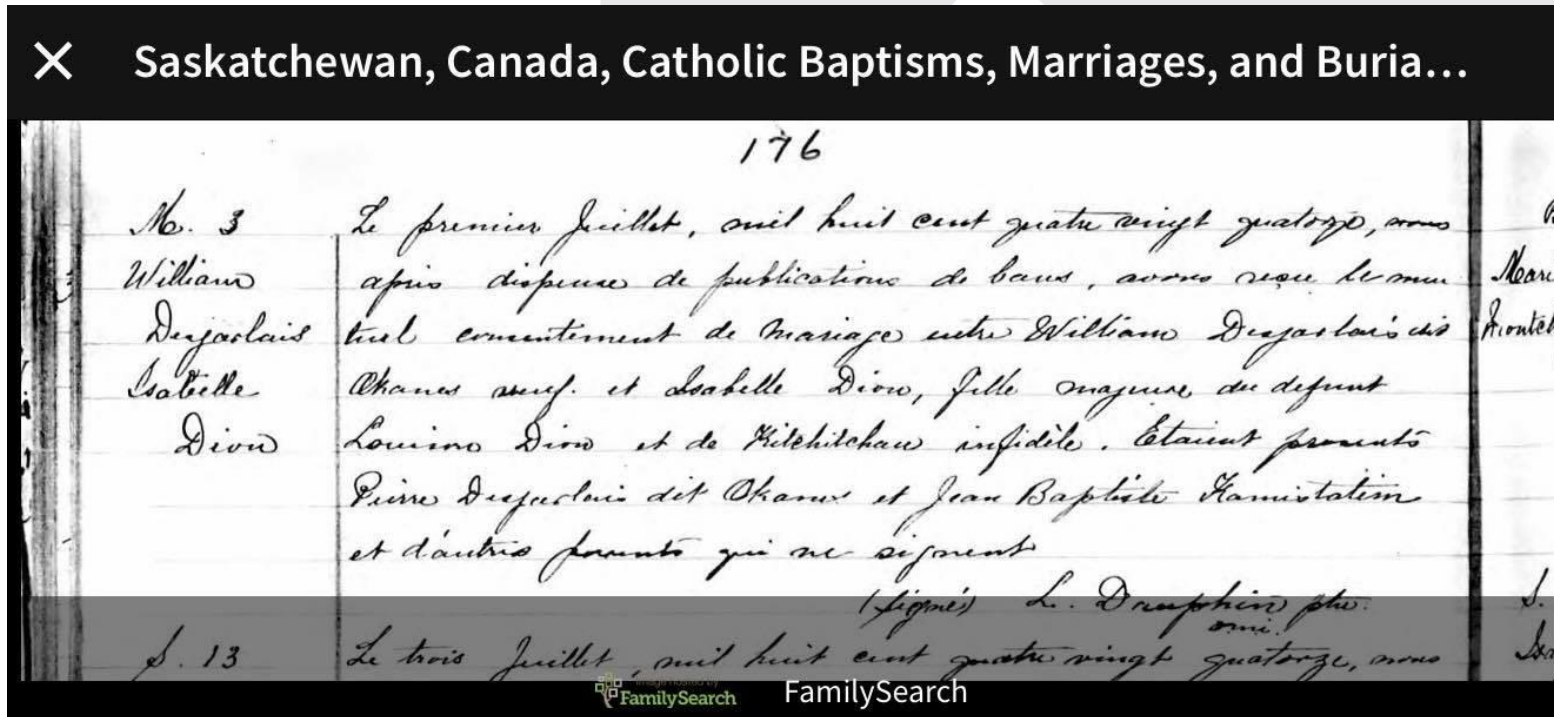 Saskatchewan, Canada, Catholic Baptisms, Marriages, and Buria...
176
M. 3
William
Desjarlais
Isabelle
Dion
Le premier Juillet, mil huit cent quatre vingt quatorze, nous
après dispense de publications de bans, avons reçu le mu
tuel consentement de mariage entre William Desjarlais dit
Okanes veuf. et Isabelle Dion, fille majeure du defunt
Louison Dion et de Kitchitchaw infidèle. Etaient presents
Pierre Desjarlais dit Okanes et Jean Baptiste Kamistatim
et d'autres parents qui ne signent
(signé) L. Dauphin ptre.
omi.
S. 13
Le trois Juillet, mil huit cent quatre vingt quatorze, nous
Mari
S.
Image hosted by
FamilySearch
FamilySearch